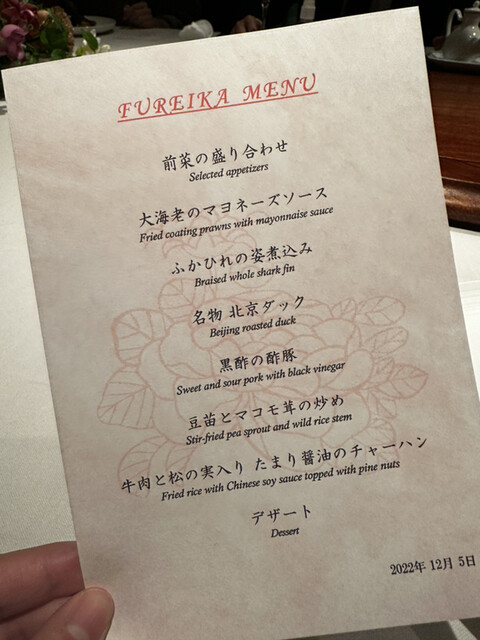 FUREIKA MENU
前菜の盛り合わせ
Selected appetizers
大海老のマヨネーズソース
Fried coating prawns with mayonnaise sauce
ふかひれの姿煮込み
Braised whole shark fin
名物 北京ダック
Beijing roasted duck
黒酢の酢豚
Sweet and sour pork with black vinegar
豆苗とマコモ茸の炒め
Stir-fried pea sprout and wild rice stem
牛肉と松の実入り たまり醤油のチャーハン
Fried rice with Chinese soy sauce topped with pine nuts
デザート
Dessert
2022年 12月 5日